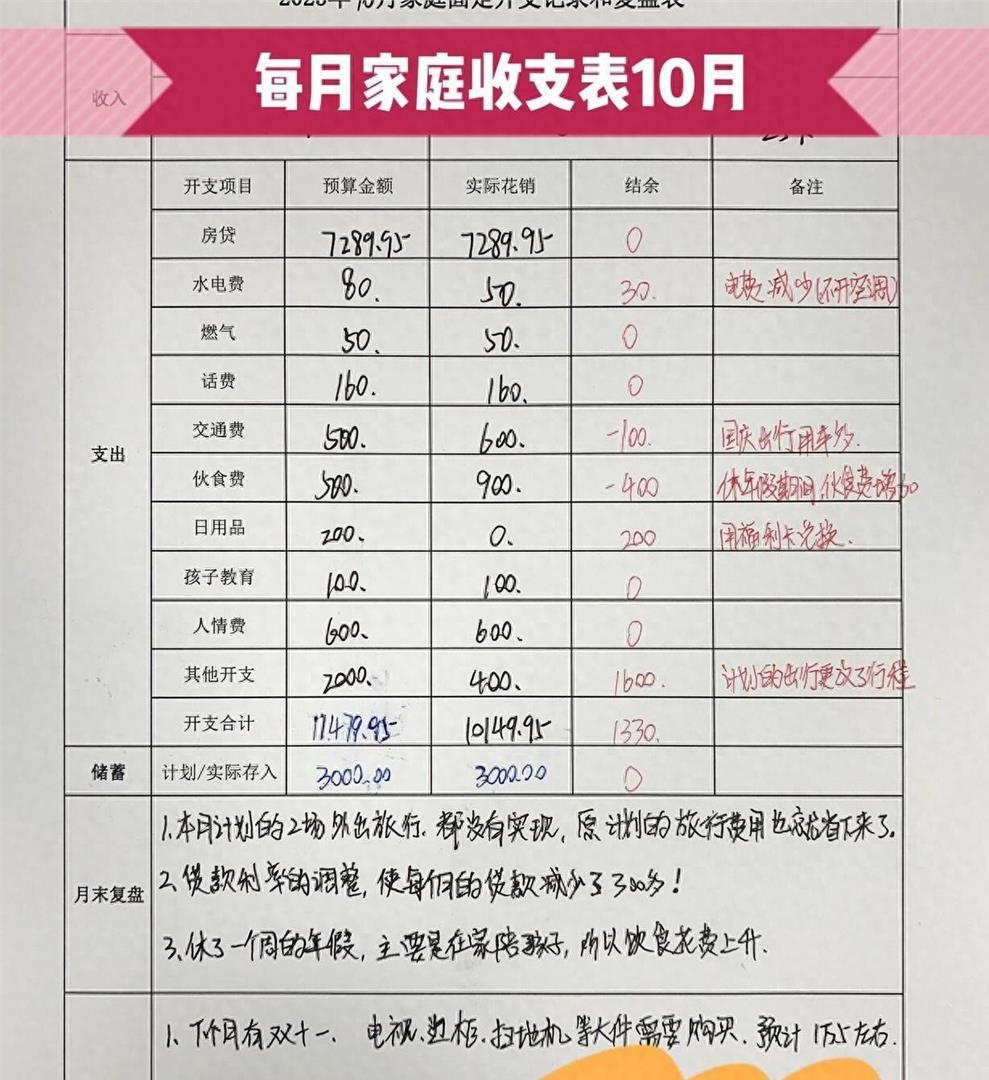 2023年10月家庭固定开支记录和复盘表
每月家庭收支表10月
收入
开支项目 预算金额 实际花销 结余 备注
房贷 7289.95 7289.95 0
水电费 80. 50. 30. 电费减少(不开空调)
燃气 50. 50. 0
话费 160. 160. 0
支出
交通费 500. 600. -100. 国庆出行用车多.
伙食费 500. 900. -400 休年假期间,伙食费增加
日用品 200. 0. 200 用福利卡兑换.
孩子教育 100. 100. 0
人情费 600. 600. 0
其他开支 2000. 400. 1600. 计划的出行更改了行程
开支合计 11479.95 10149.95 1330.
储蓄 计划/实际存入 3000.00 3000.00 0
1.本月计划的2场外出旅行.都没有实现,原计划的旅行费用也就省下来了.
月末复盘 2.贷款利率的调整,使每月的贷款减少了300多!
3.休了一个周的年假,主要是在家陪孩子,所以饮食花费上升.
1.下个月有双十一、电视.边柜.扫地机等大件需要购买.预计1万5左右.